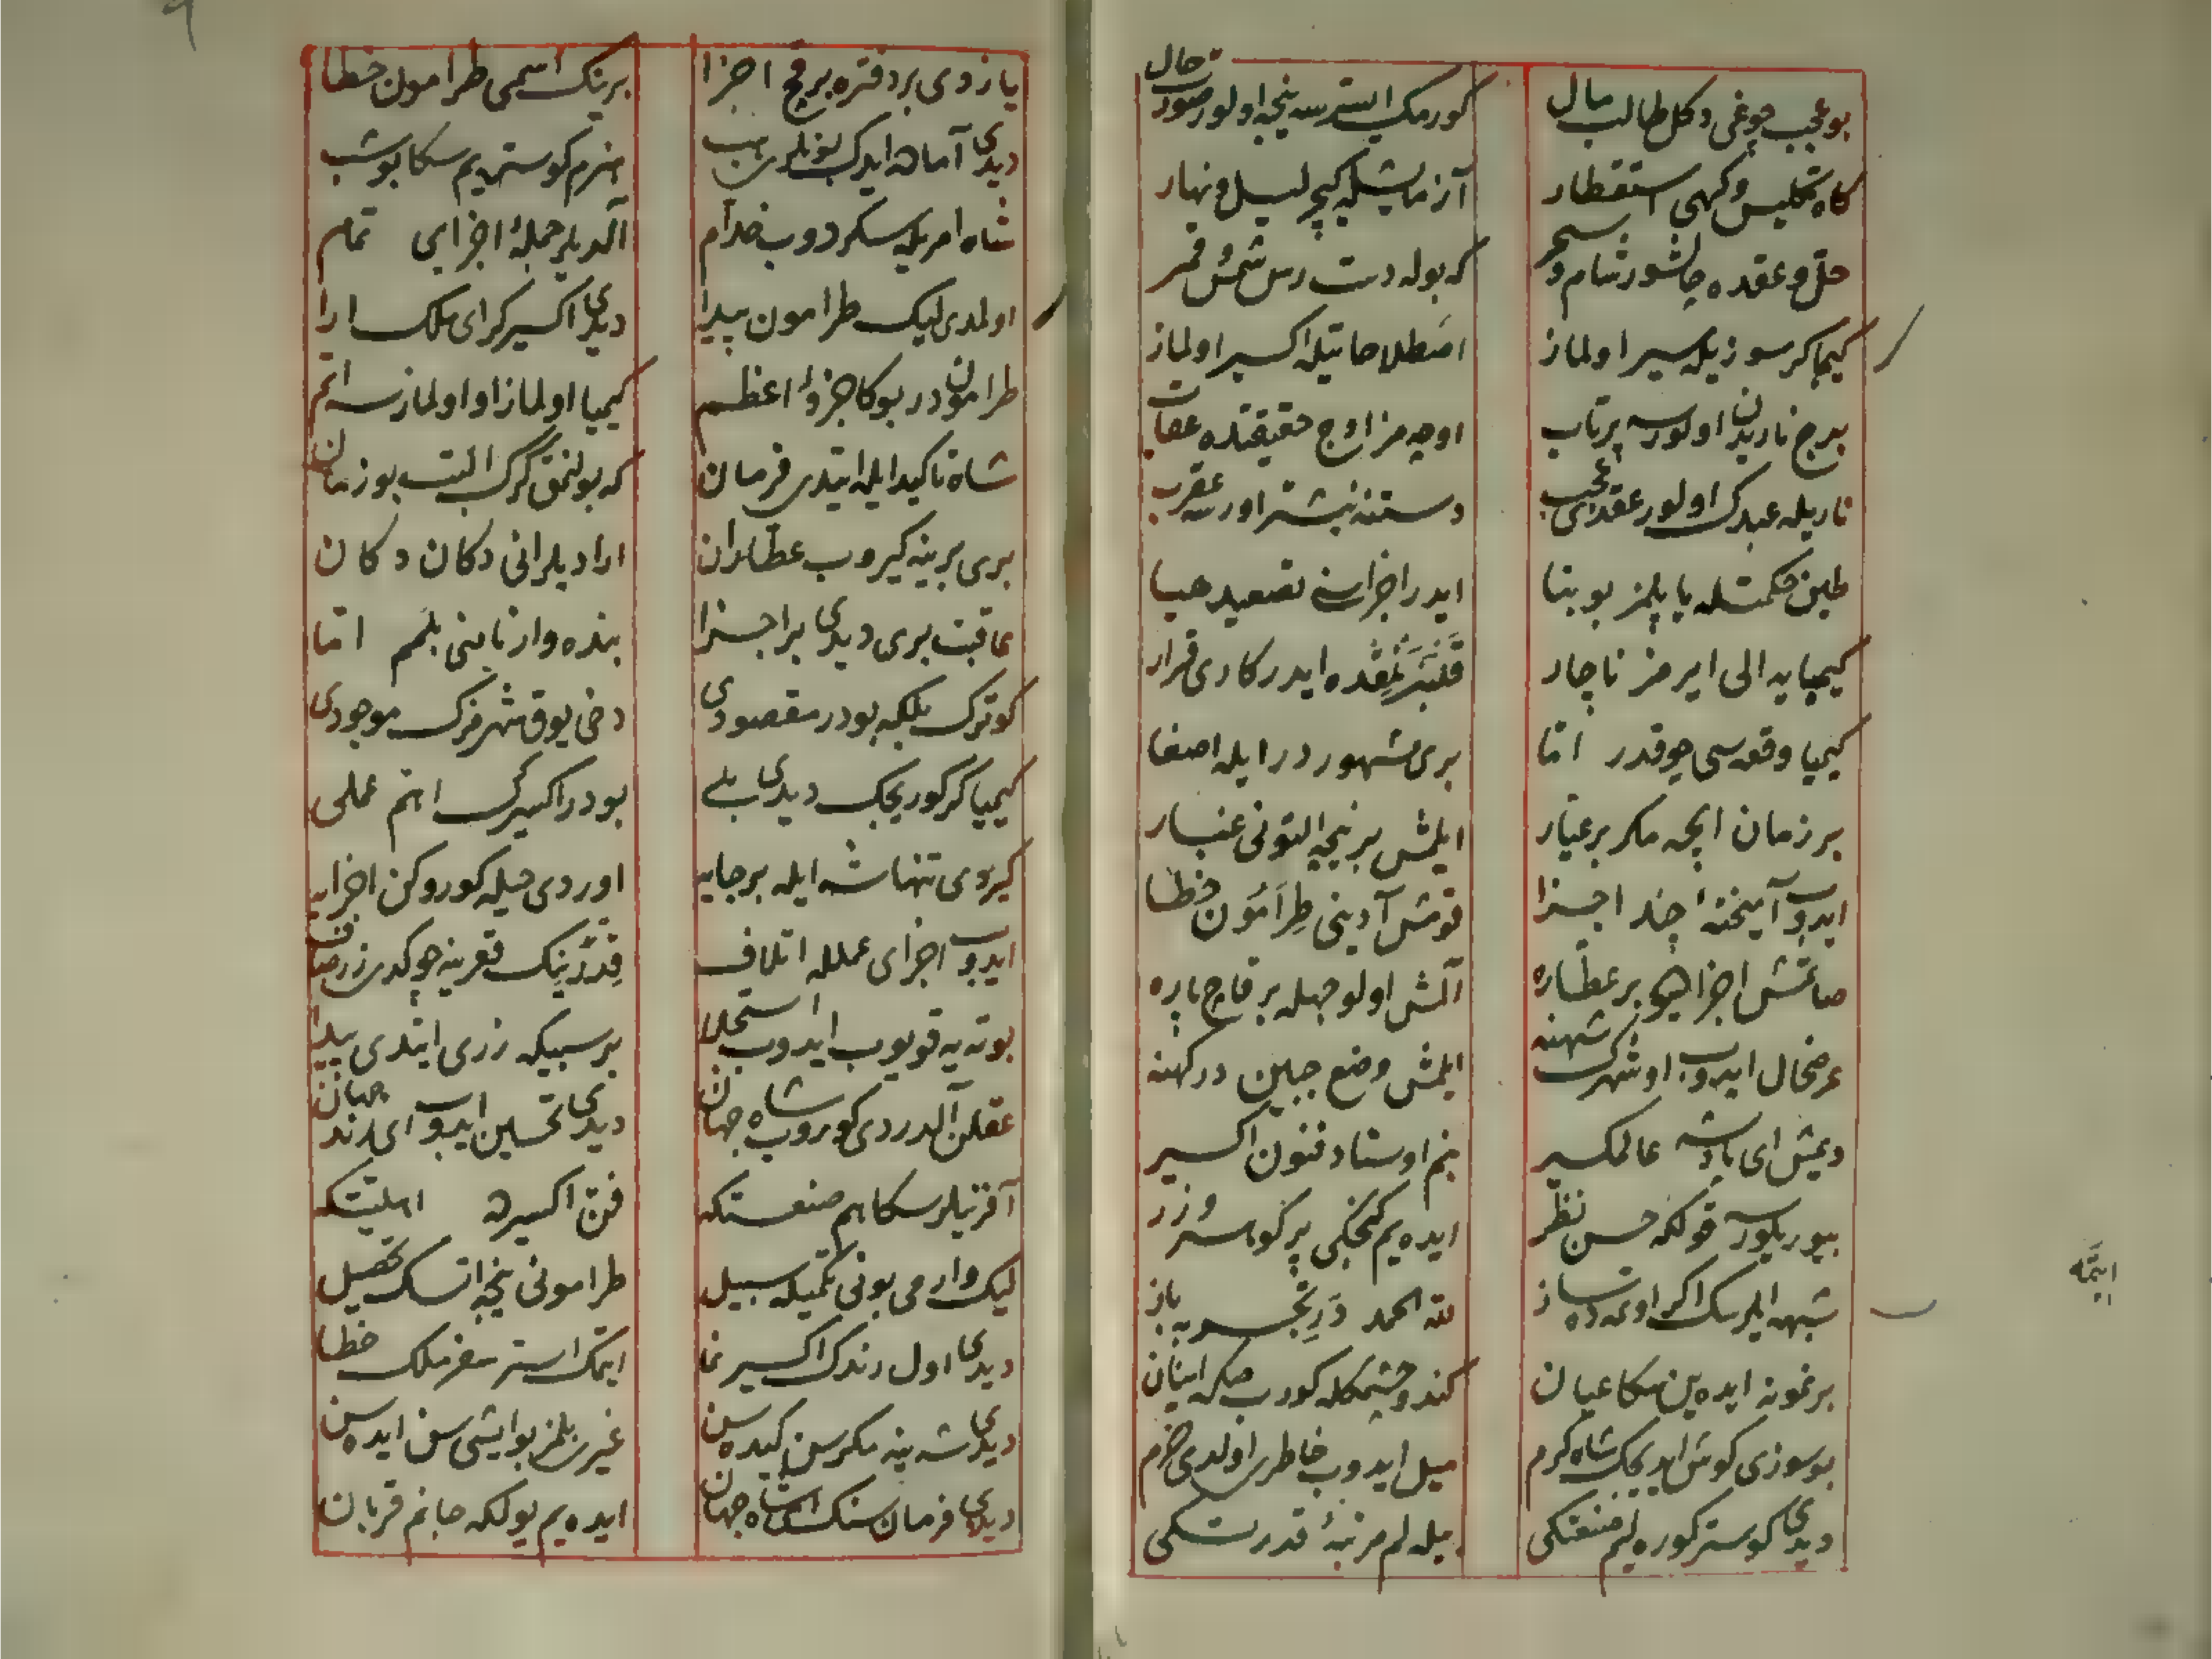 بو عجب چوغی دکل طالب مال
کورمک استرسه نیجه اولور صورت حال
کاه تکلیس و کهی استقطار
آزمایشله کچر لیل و نهار
حل و عقده چالشور شام و سحر
که بوله دست رس شمس و قمر
کیمیاکر سوزیله سیر اولماز
اصطلاحاتیله اکسیر اولماز
برج ناریدن اولورسه پرتاب
اوجه مز اوج حقیقتده عقاب
ناریله عبدک اولور عقدی عجب
دستنه نیشتر اورر سه عقرب
طین حکمتله یاپلمز بو بنا
ایدر اجزاسنی تصعید هبا
کیمیایه الی ایرمز ناچار
قلنبر نمقده ایدر کاری قرار
کیمیا وقعه سی چوقدر اما
بری مشهوردر ایله اصغا
بر زمان ایچره مکر بر عیار
ایلمش بر نیجه التونی غبار
ایدوب آمیخته چند اجزا
قومش آدینی طرامون خطا
صاتمش اجزا دیو بر عطاره
آلمش اولوجهله بر قاچ پاره
عرضحال ایدوب او شهرک شهنه
ایلمش وضع جبین درکهنه
دیمش ای پادشه عالمکیر
بنم اوستاد فنون اکسیر
بیوریلورسه قولکه حسن نظر
ایده یم کنجکی پر کوهر و زر
شبهه ایلرسک اکر اوی ده ساز
لله الحمد در تجربه باز
بر نمونه ایده ین سکا عیان
کندو چشمکله کورب صکره اینان
بو سوزی کوش ایدیجک شاه کرم
میل ایدوب خاطری اولدی خرم
دیدی کوستر کوره لم صنعتکی
بیله لم مرتبهٔ قدرتکی
ایمه
یازدی بر دفتره بر قچ اجزا
برینک اسمی طرامون خطا
دیدی آماده ایدک بونلری هب
هنرم کوستریم سکا بو شب
شاه امریله سکردوب خدام
آلدیلر جملهٔ اجزایی تمام
اولمدی لیک طرامون پیدا
دیدی اکسیرکر ای ملک ارا
طرامون در بوکا جزؤ اعظم
کیمیا اولماز او اولمازسه اتم
شاه تاکید ایله ایتدی فرمان
که بولنمق کرک البت بو زمان
بری برینه کیروب عطاران
ارادیلر انی دکان دکان
عاقبت بری دیدی بر اجزا
بنده وار نامنی بلمم اما
کوترک بلکه بودر مقصودی
دخی یوق شهرمزک موجودی
کیمیاکر کوریجک دیدی بلی
بودر اکسیرک اتم عملی
کیردی تنها شه ایله بر جایه
اوردی حیله کوروکن اجزایه
ایدوب اجزای عملله اتلاف
قدرینک قعرینه چوکدی زر صاف
بوته یه قویوب ایدوب استحلال
بر سبیکه زری ایتدی پیدا
عقلن آلدردی کوروب شاه جهان
دیدی تحسین ایدوب ای رند جهان
آفرینلر سکا هم صنعتکه
فن اکسیرده اهلیتکه
لیک وارمی بونی تکمیله سبیل
طرامونی نیجه اتسک تحصیل
دیدی اول رندک اکسیر نما
ایتمک استر سفر ملک خطا
دیدی شه ینه مکر سن کیده سن
غیری بلمز بو ایشی سن ایده سن
دیدی فرمان سنک ای شاه جهان
ایده یم یولکه جانم قربان